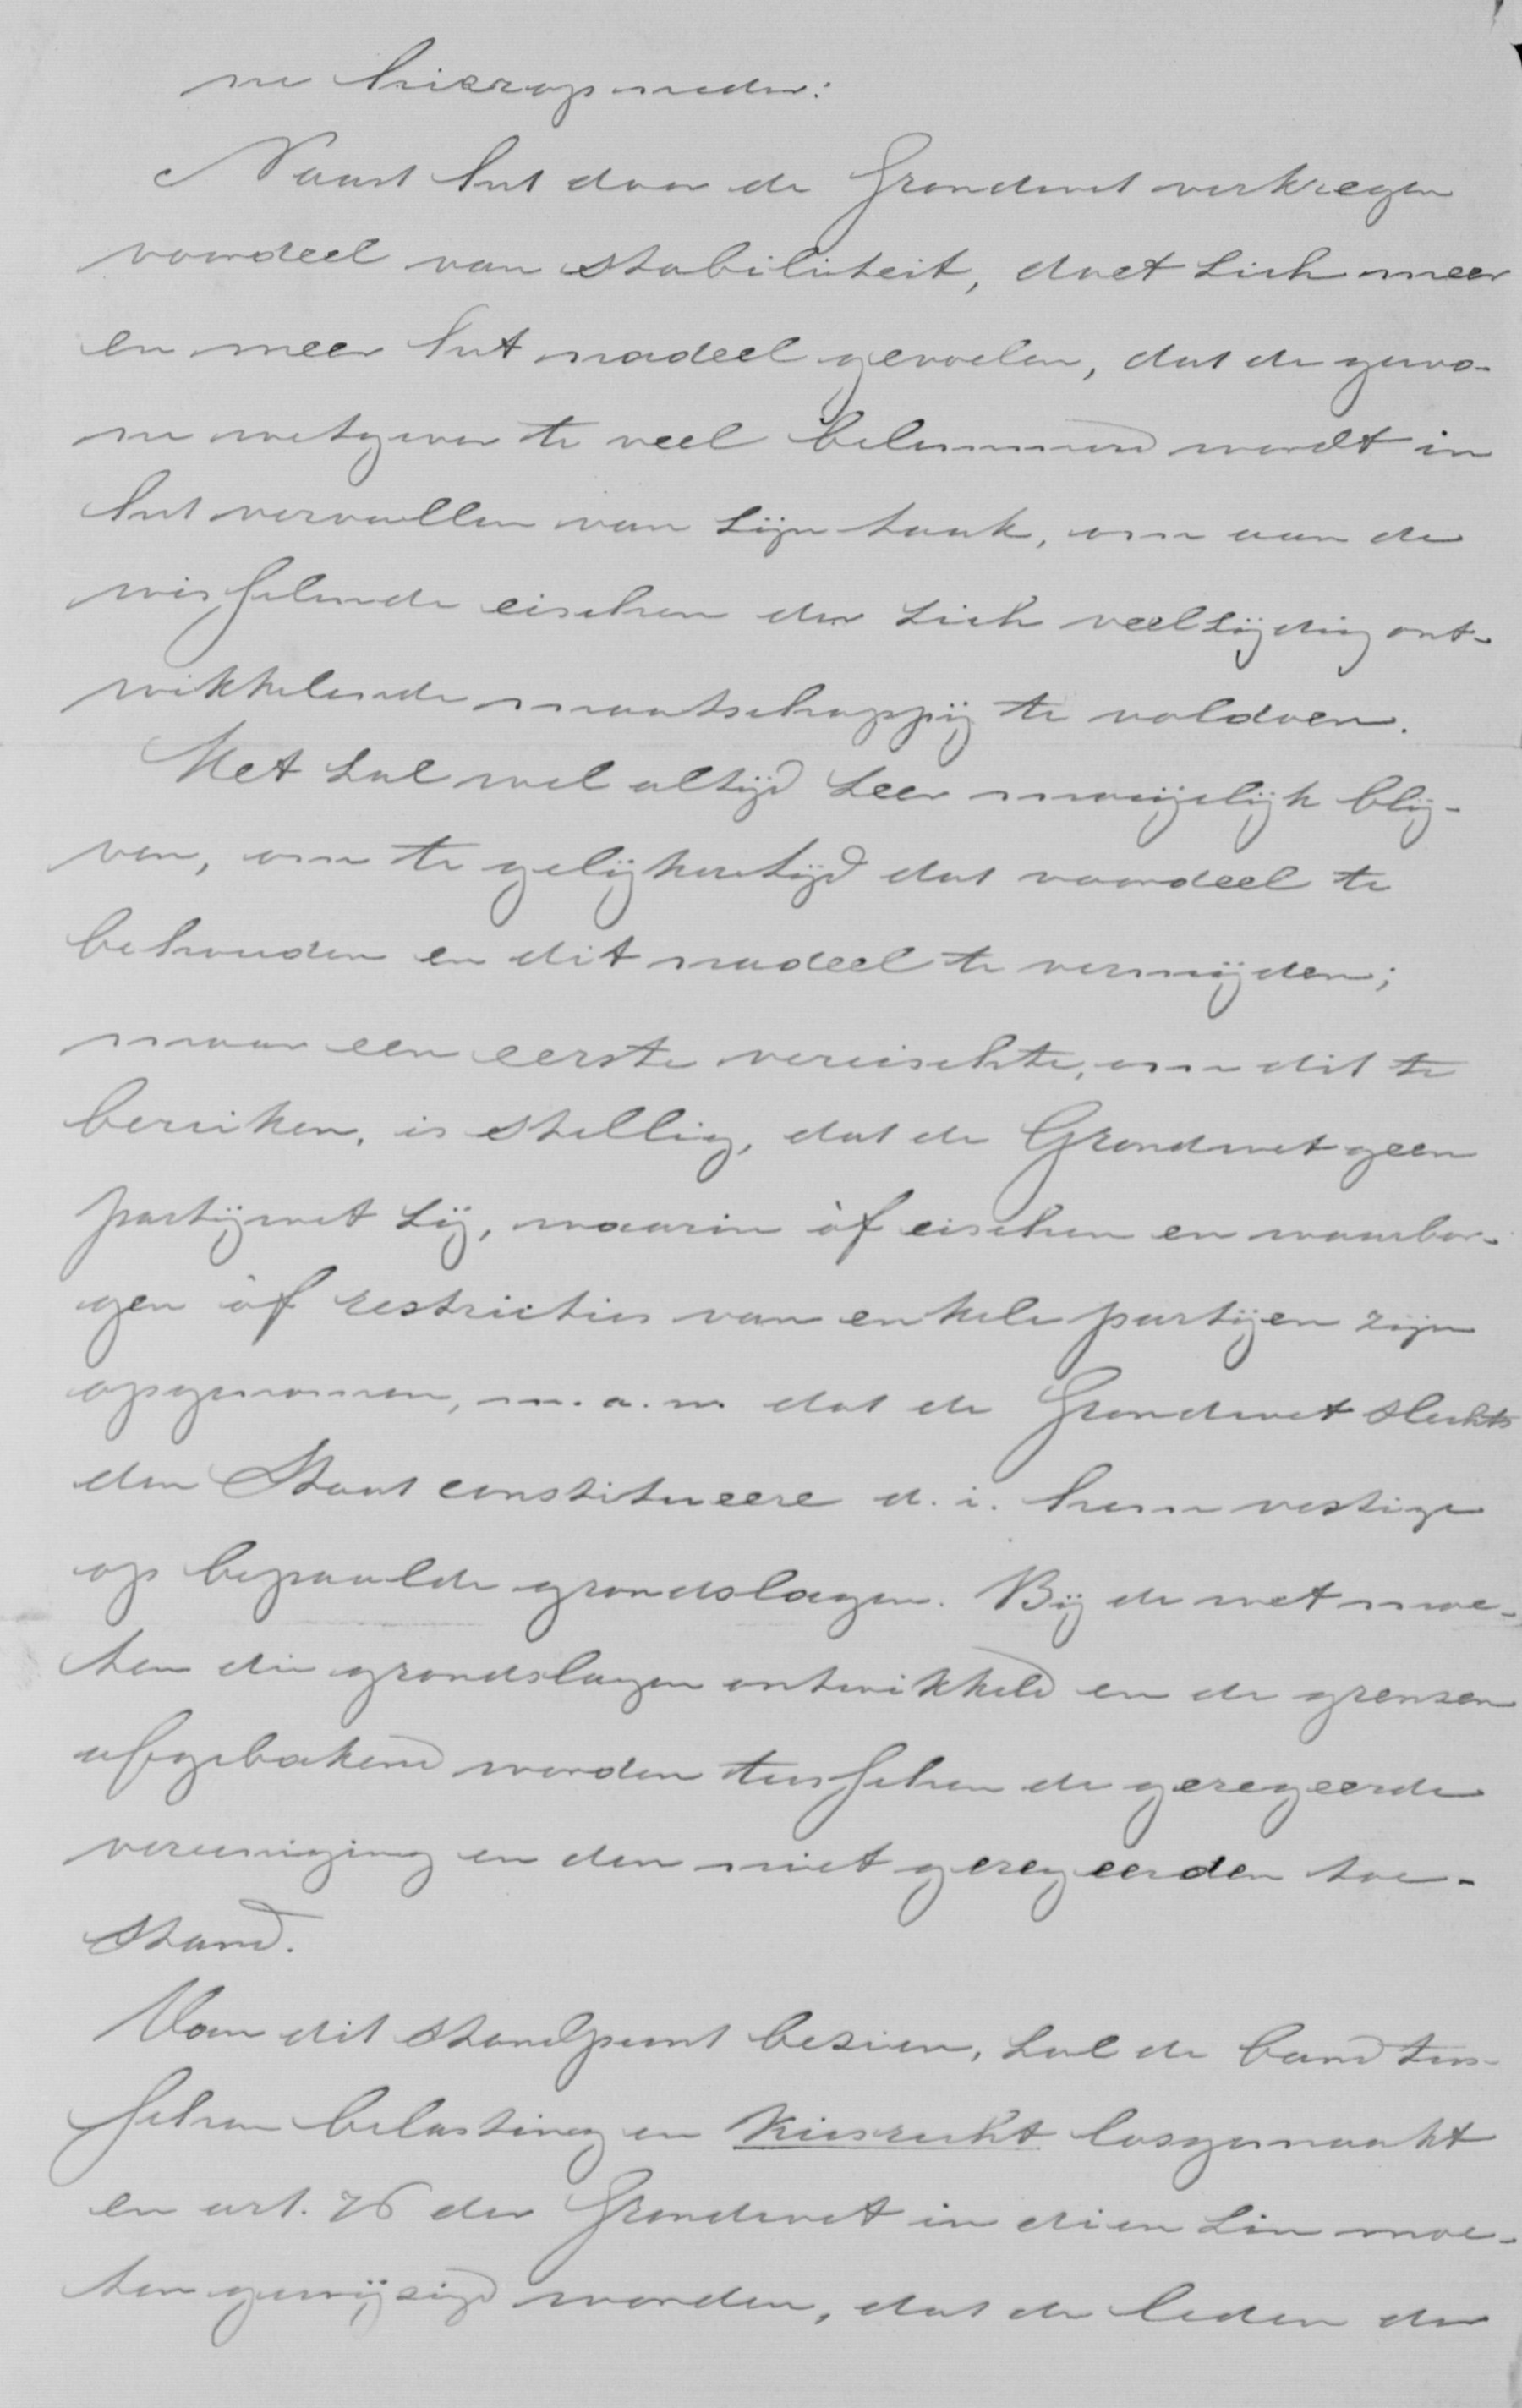 ne hierop neder:
Naast het door de Grondwet verkregen
voordeel van stabiliteit, doet zich meer
en meer het nadeel gevoelen, dat de gewo-
ne wetgever te veel belemmerd wordt in
het vervullen van zijn taak, om aan de
wisselende eischen der zich veelzijdig ont-
wikkelende maatschappij te voldoen.
Het zal wel altijd zeer moeijelijk blij-
ven, om te gelijkertijd dat voordeel te
behouden en dit nadeel te vermijden;
maar een eerste vereischte, om dit te
bereiken, is stellig, dat de Grondwet geen
partijwet zij, waarin òf eischen en waarbor-
gen òf restricties van enkele partijen zijn
opgenomen, m.a.w. dat de Grondwet slechts
den Staat constitueere d.i. hem vestige
op bepaalde grondslagen. Bij de wet moe-
ten die grondslagen ontwikkeld en de grenzen
afgebakend worden tusschen de geregeerde
vereeniging en den niet geregeerden toe-
stand.
Van dit standpunt bezien, zal de band tus-
schen belasting en kiesrecht losgemaakt
en art. 76 der Grondwet in dien zin moe-
ten gewijzigd worden, dat de leden der